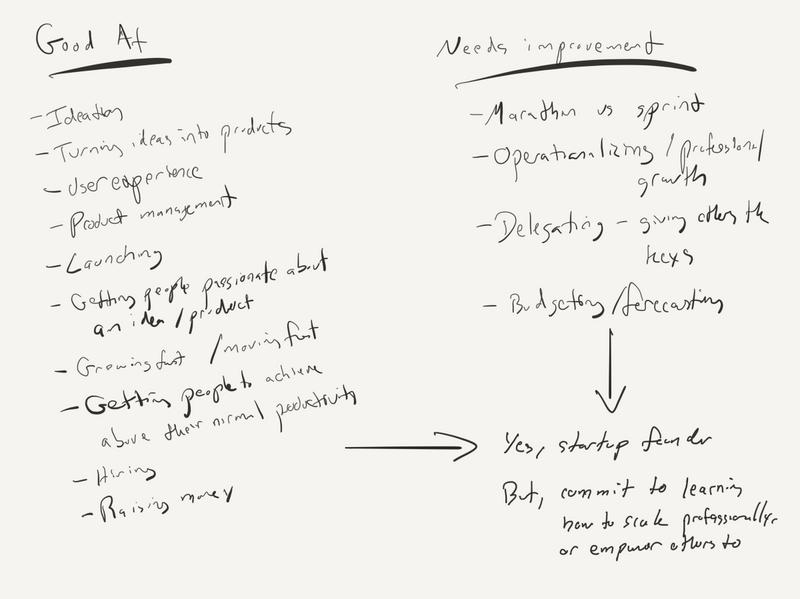 Good At
- Ideation
- Turning ideas into products
- User experience
- Product management
- Launching
- Getting people passionate about
an idea/product
- Growing fast / moving fast
- Getting people to achieve
above their normal productivity
- Hiring
- Raising money
Needs improvement
- Marathon vs sprint
- Operationalizing / professional
growth
- Delegating - giving others the
keys
- Budgeting/forecasting
Yes, startup founder
But, commit to learning
how to scale professionally,
or empower others to